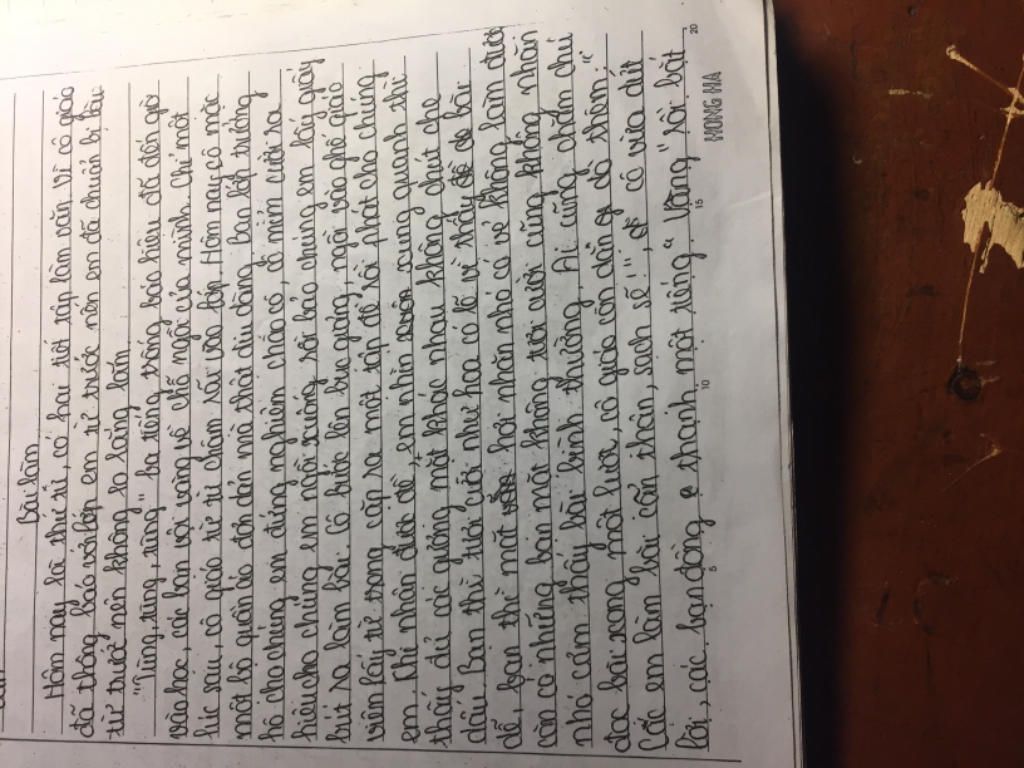 Bài làm
Hôm nay là thứ tư, có hai tiết tập làm văn. Vì cô giáo
đã thông báo với lớp em từ trước nên em đã chuẩn bị bài
từ trước nên không lo lắng lắm
"Tùng, tùng, tùng" ba tiếng trống báo hiệu đã đến giờ
vào học, các bạn vội vàng về chỗ ngồi của mình. Chỉ một
lúc sau, cô giáo từ từ chậm rãi vào lớp. Hôm nay, cô mặc
một bộ quần áo đơn giản mà thật dịu dàng, bạn lớp trưởng
hô cho chúng em đứng nghiêm chào cô, cô mỉm cười ra
hiệu cho chúng em ngồi xuống rồi bảo chúng em lấy giấy
bút ra làm bài. Cô bước lên bục giảng, ngồi vào ghế giáo
viên lấy từ trong cặp ra một tập đề rồi phát cho chúng
em. Khi nhận được đề, em nhìn xung quanh thì
thấy đủ các gương mặt khác nhau không chút che
dấu. Bạn thì tươi cười như hoa có lẽ vì thấy đề dễ bài
dễ, bạn thì mặt hơi nhăn nhó có vẻ không làm được
còn có những bạn mặt không tươi cười cũng không nhăn
nhó cảm thấy bài bình thường. Ai cũng chăm chú
đọc bài xong một lượt, cô giáo ân cần dặn dò thêm: "
Các em làm bài cẩn thận, sạch sẽ!" cô vừa dứt
lời, các bạn đồng thanh một tiếng "Vâng" rồi bắt
5 10 15 20
HONG HA